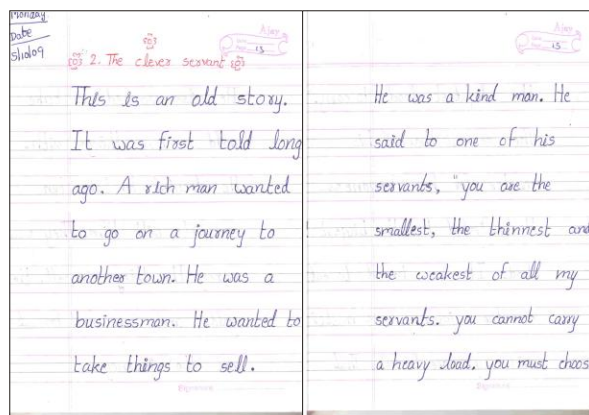 Monday
Date
5/10/09
2. The clever servant
This is an old story.
It was first told long
ago. A rich man wanted
to go on a journey to
another town. He was a
businessman. He wanted to
take things to sell.
15
He was a kind man. He
said to one of his
servants, "you are the
smallest, the thinnest and
the weakest of all my
servants. you cannot carry
a heavy load. you must choos